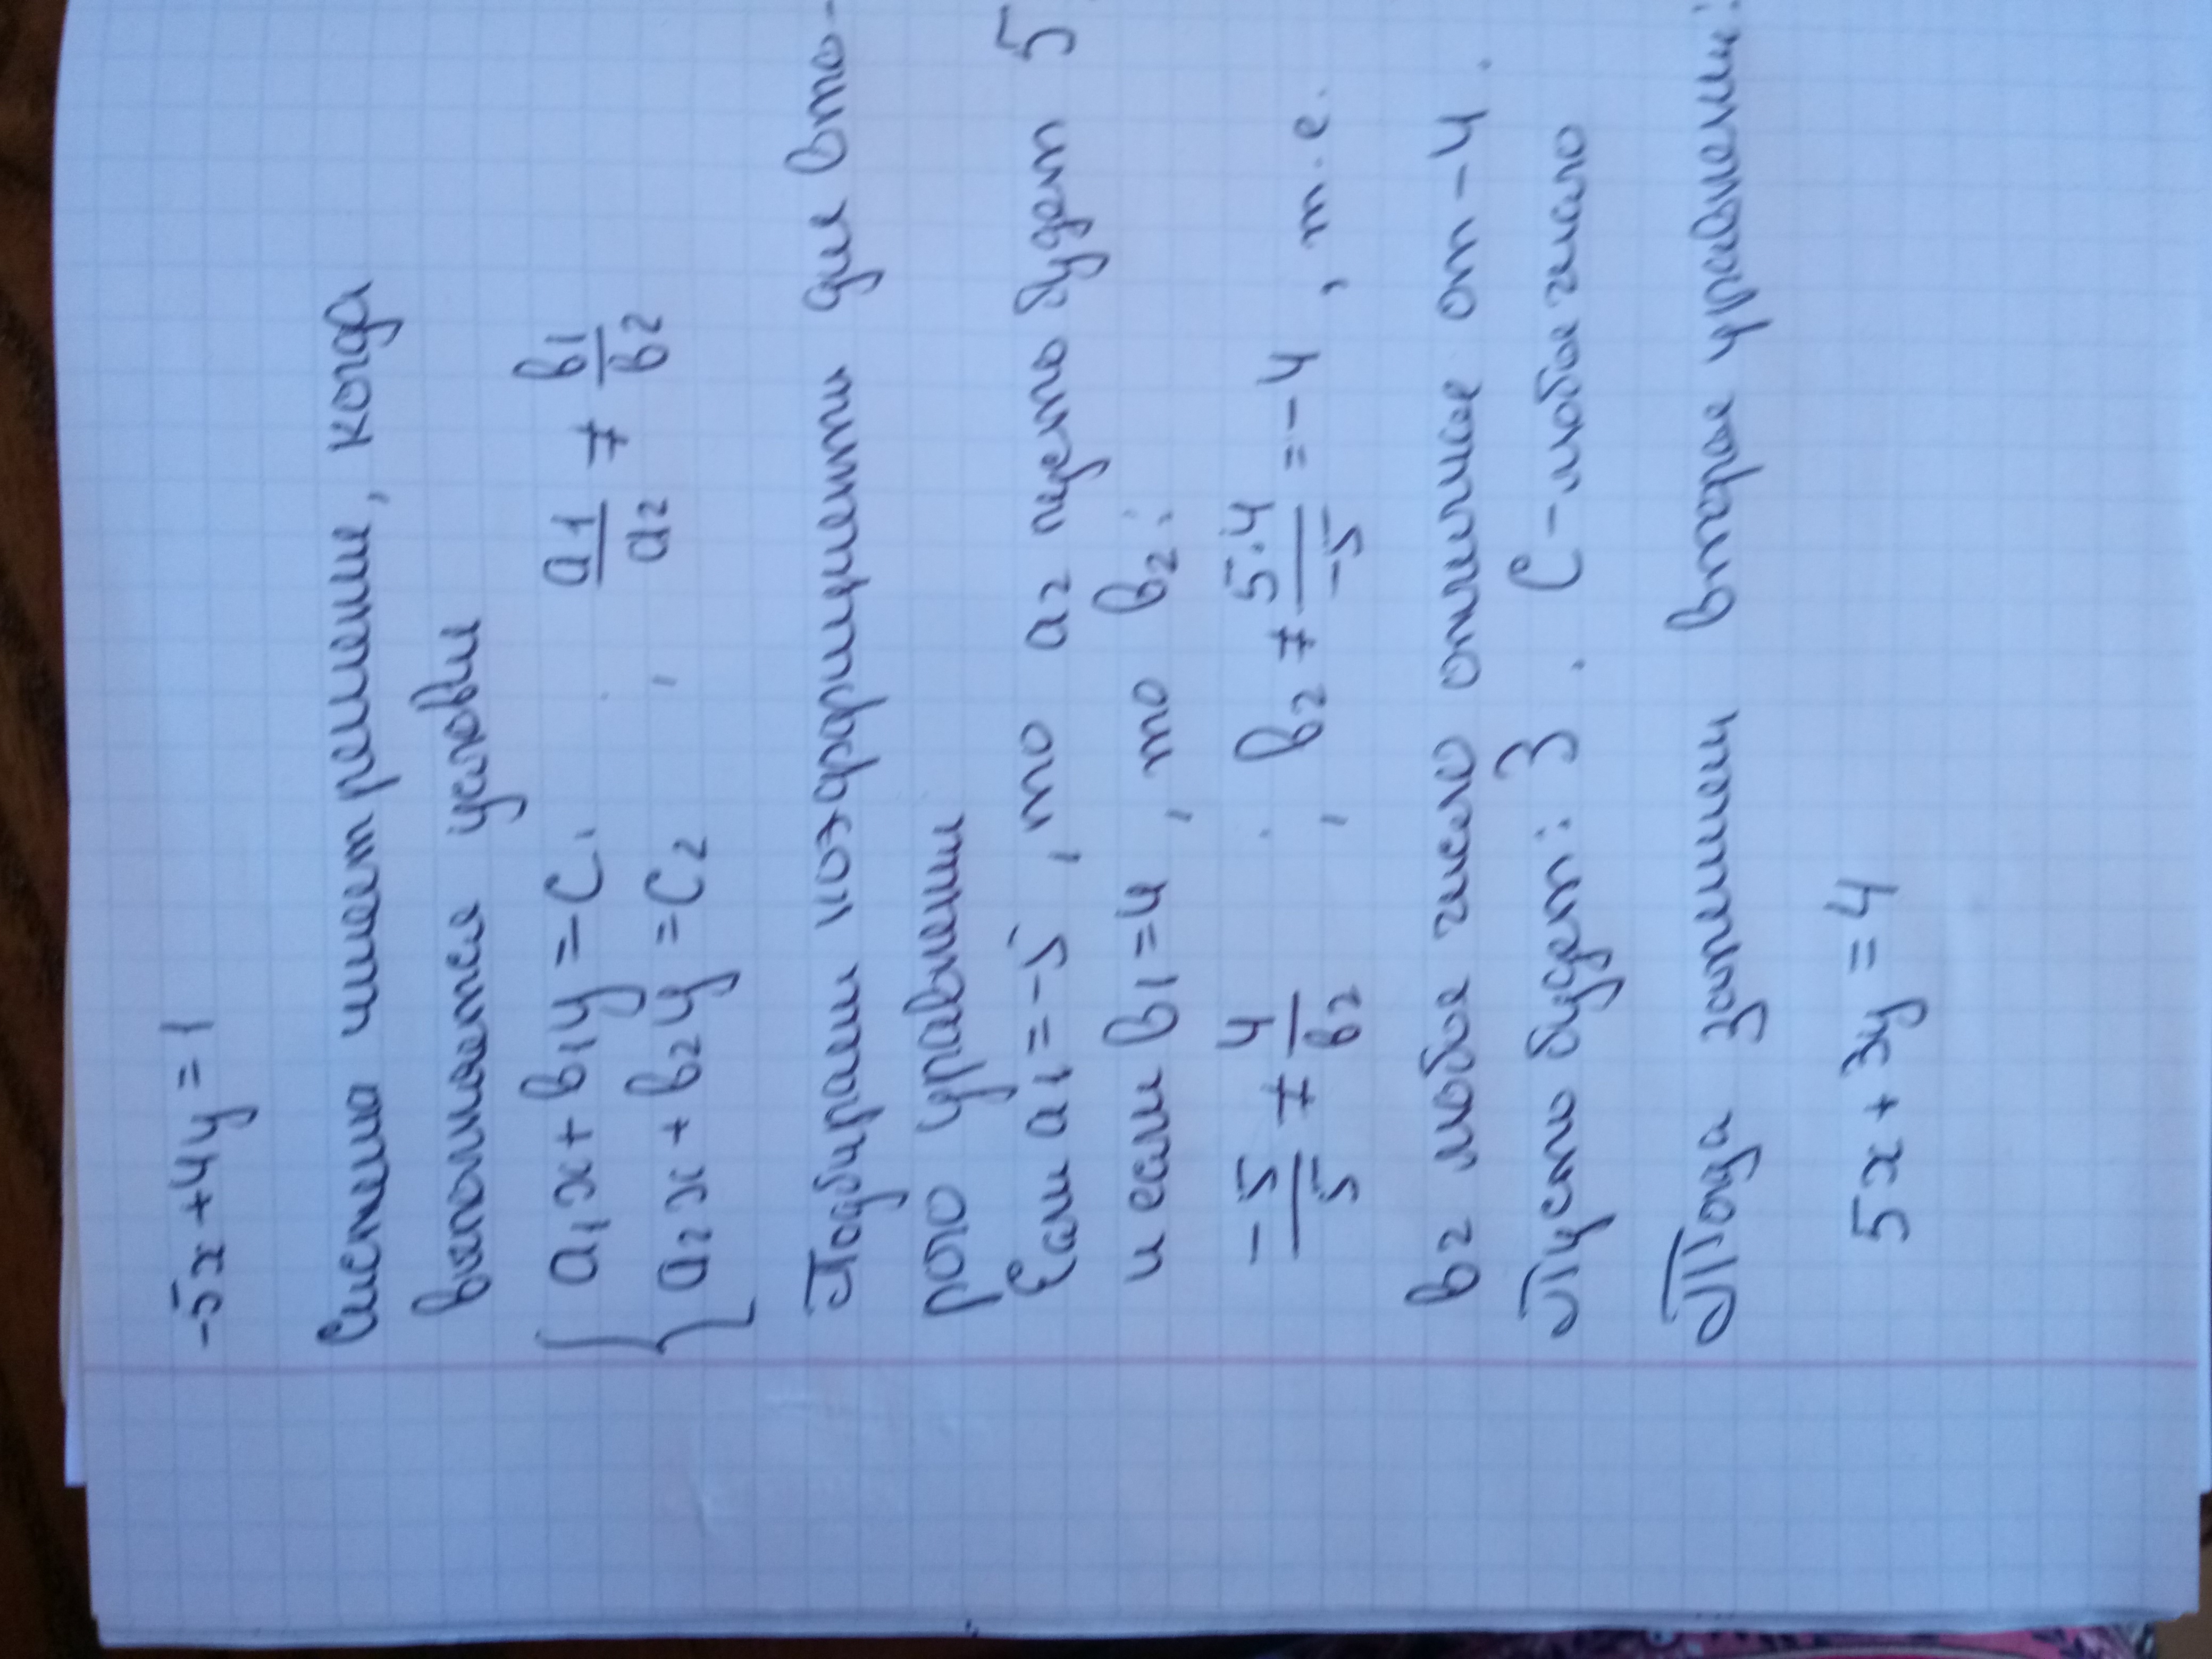 -5x+4y=1
одному решению системы, когда
выполнено условие
{ a1x+b1y=C1 , a1/a2 ≠ b1/b2
a2x+b2y=C2
Подберём коэффициенты для вто-
рого уравнения
Если a1=-5, то a2 пусть будет 5
и если b1=4, то b2:
-5/5 ≠ 4/b2 , b2 ≠ 5·4/-5 =-4, т.е.
b2 любое число отличное от -4.
Пусть будет: 3. C-любое число
Тогда запишем второе уравнение:
5x+3y=4